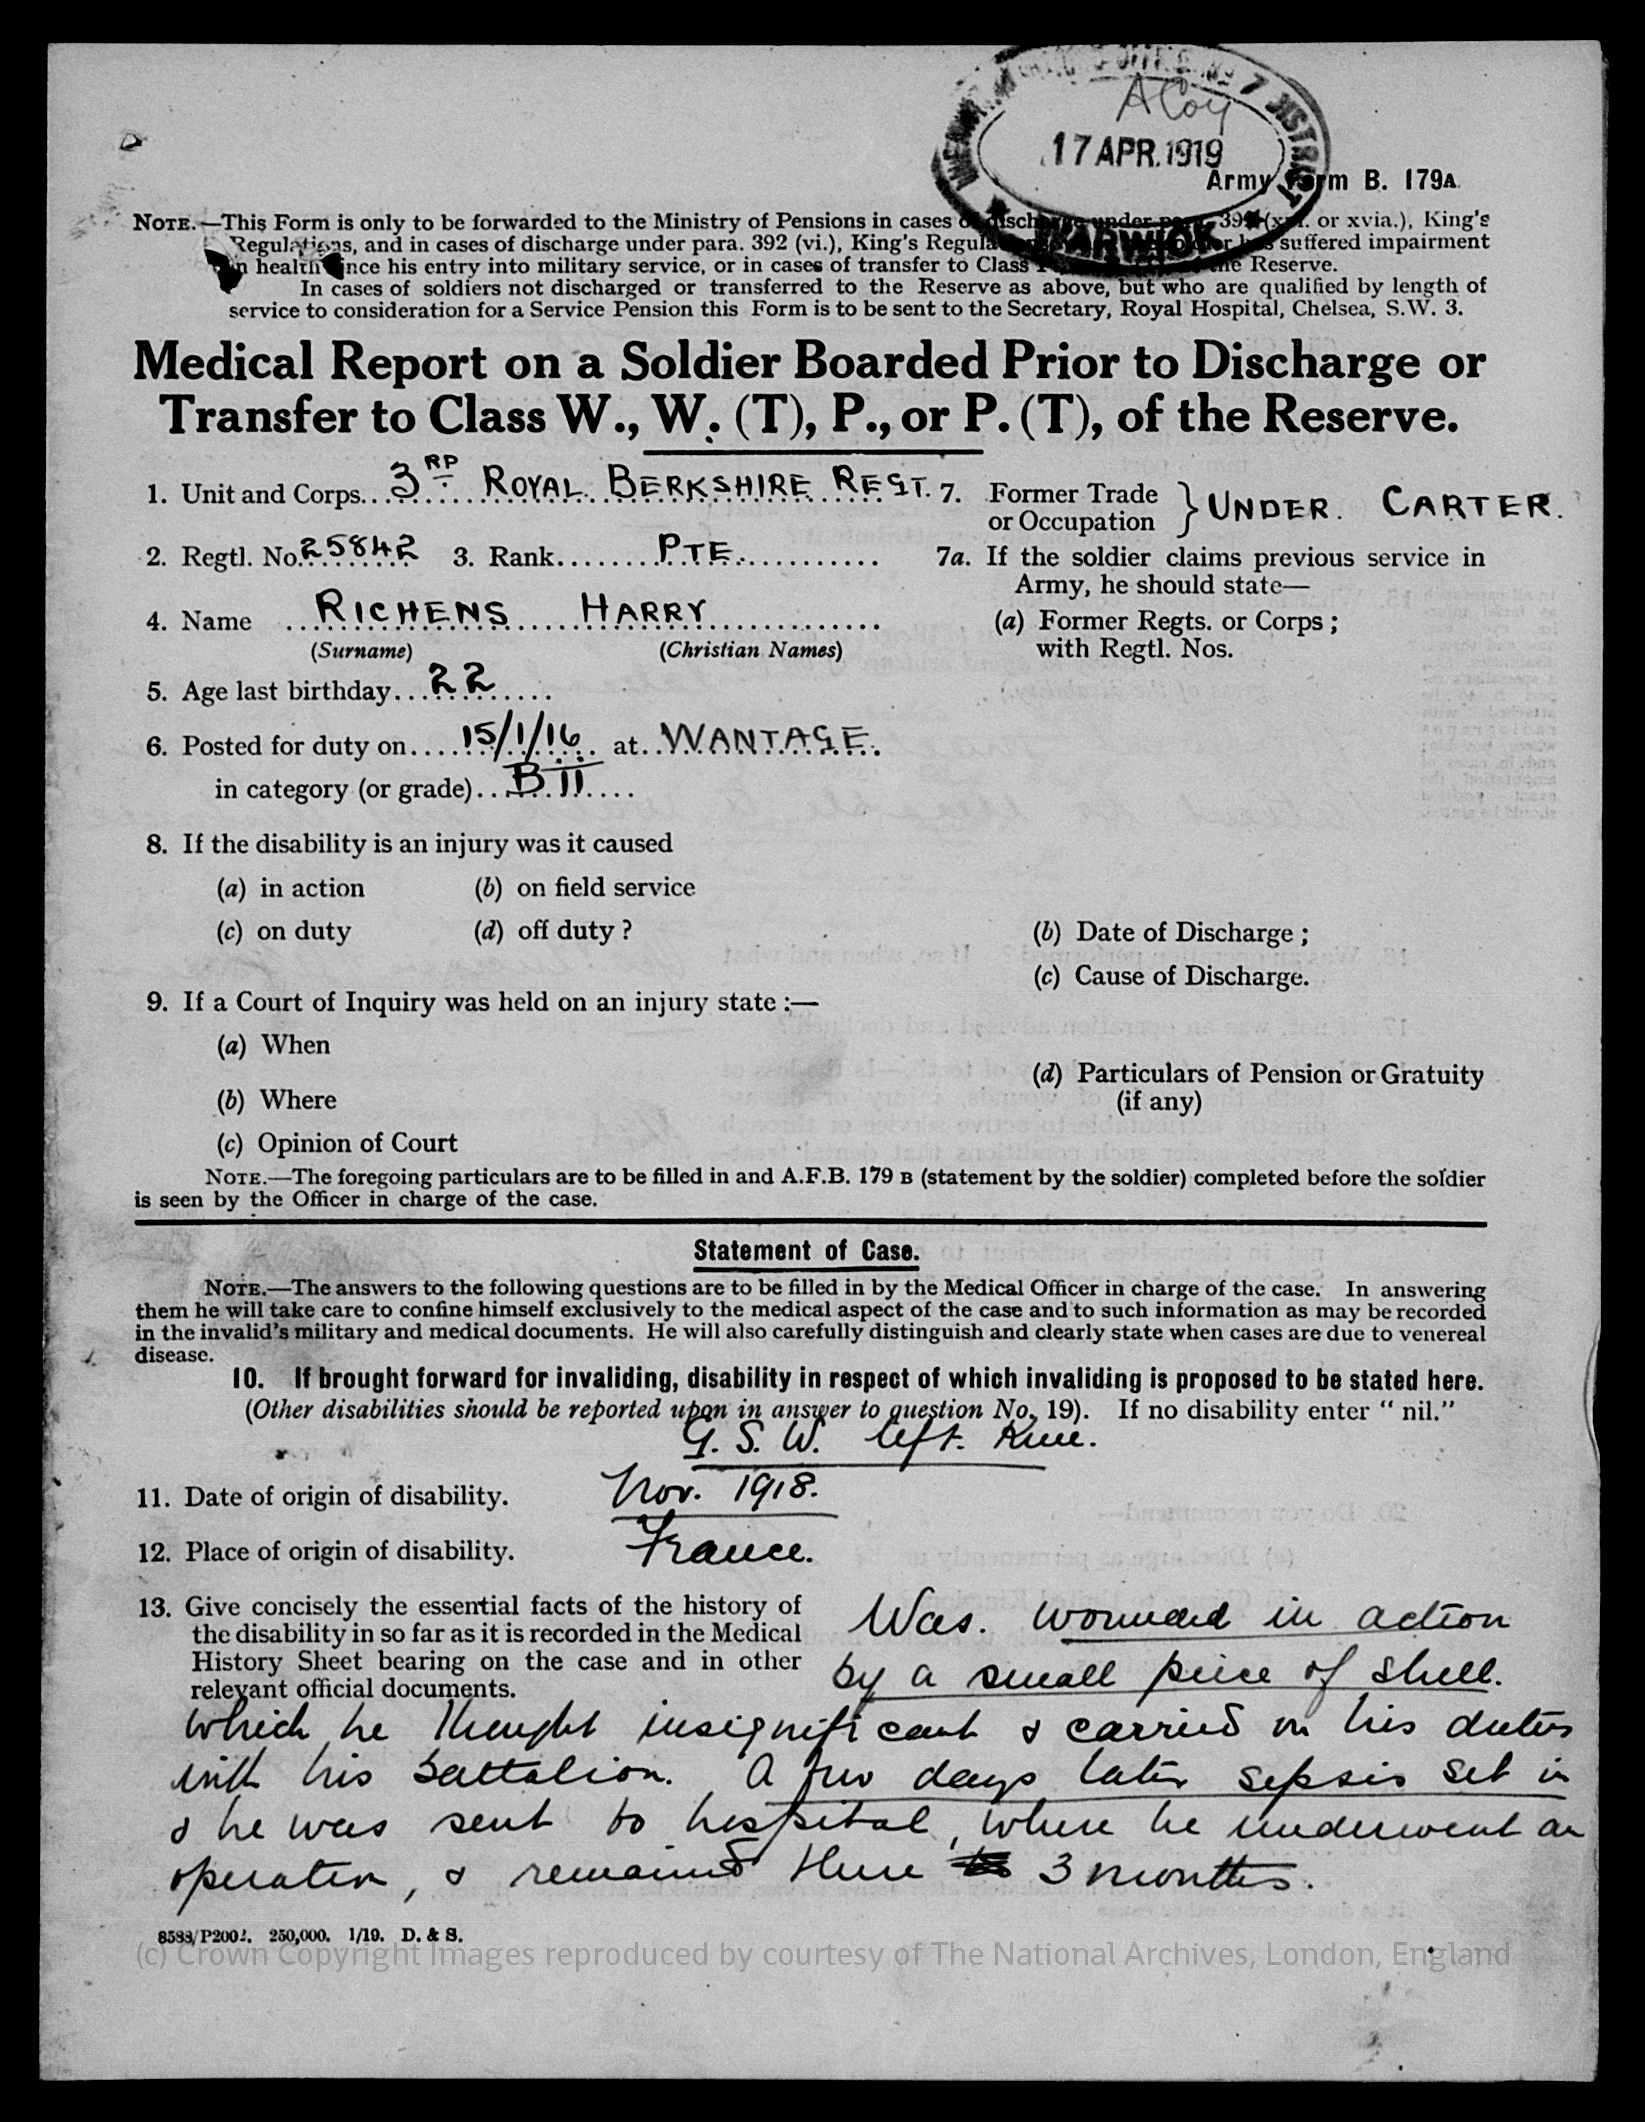 7 DISTRICT
A Coy
17 APR. 1919
WARWICK
Army Form B. 179A
NOTE.—This Form is only to be forwarded to the Ministry of Pensions in cases of discharge under para. 392 or xvia.), King's
Regulations, and in cases of discharge under para. 392 (vi.), King's suffered impairment
in health since his entry into military service, or in cases of transfer to Class the Reserve.
In cases of soldiers not discharged or transferred to the Reserve as above, but who are qualified by length of
service to consideration for a Service Pension this Form is to be sent to the Secretary, Royal Hospital, Chelsea, S.W. 3.
Medical Report on a Soldier Boarded Prior to Discharge or
Transfer to Class W., W. (T), P., or P. (T), of the Reserve.
1. Unit and Corps... 3RD ROYAL BERKSHIRE REGT.
2. Regtl. No. 25842 3. Rank... PTE.
4. Name RICHENS HARRY
(Surname) (Christian Names)
5. Age last birthday... 22
6. Posted for duty on... 15/1/16 at... WANTAGE.
in category (or grade)... B II
7. Former Trade or Occupation } UNDER. CARTER.
7a. If the soldier claims previous service in
Army, he should state—
(a) Former Regts. or Corps ;
with Regtl. Nos.
8. If the disability is an injury was it caused
(a) in action (b) on field service
(c) on duty (d) off duty ?
(b) Date of Discharge ;
(c) Cause of Discharge.
9. If a Court of Inquiry was held on an injury state :—
(a) When
(d) Particulars of Pension or Gratuity
(if any)
(b) Where
(c) Opinion of Court
NOTE.—The foregoing particulars are to be filled in and A.F.B. 179 B (statement by the soldier) completed before the soldier
is seen by the Officer in charge of the case.
Statement of Case.
NOTE.—The answers to the following questions are to be filled in by the Medical Officer in charge of the case. In answering
them he will take care to confine himself exclusively to the medical aspect of the case and to such information as may be recorded
in the invalid's military and medical documents. He will also carefully distinguish and clearly state when cases are due to venereal
disease.
10. If brought forward for invaliding, disability in respect of which invaliding is proposed to be stated here.
(Other disabilities should be reported upon in answer to question No. 19). If no disability enter " nil."
G. S. W. left. Knee.
11. Date of origin of disability. Nov. 1918.
12. Place of origin of disability. France.
13. Give concisely the essential facts of the history of
the disability in so far as it is recorded in the Medical
History Sheet bearing on the case and in other
relevant official documents.
Was. wounded in action
by a small peice of shell.
which he thought insignificant & carried on his duties
with his battalion. A few days later sepsis set in
& he was sent to hospital, where he underwent an
operation, & remained there 3 months.
8583/P2002. 250,000. 1/19. D. & S.
(c) Crown Copyright Images reproduced by courtesy of The National Archives, London, England